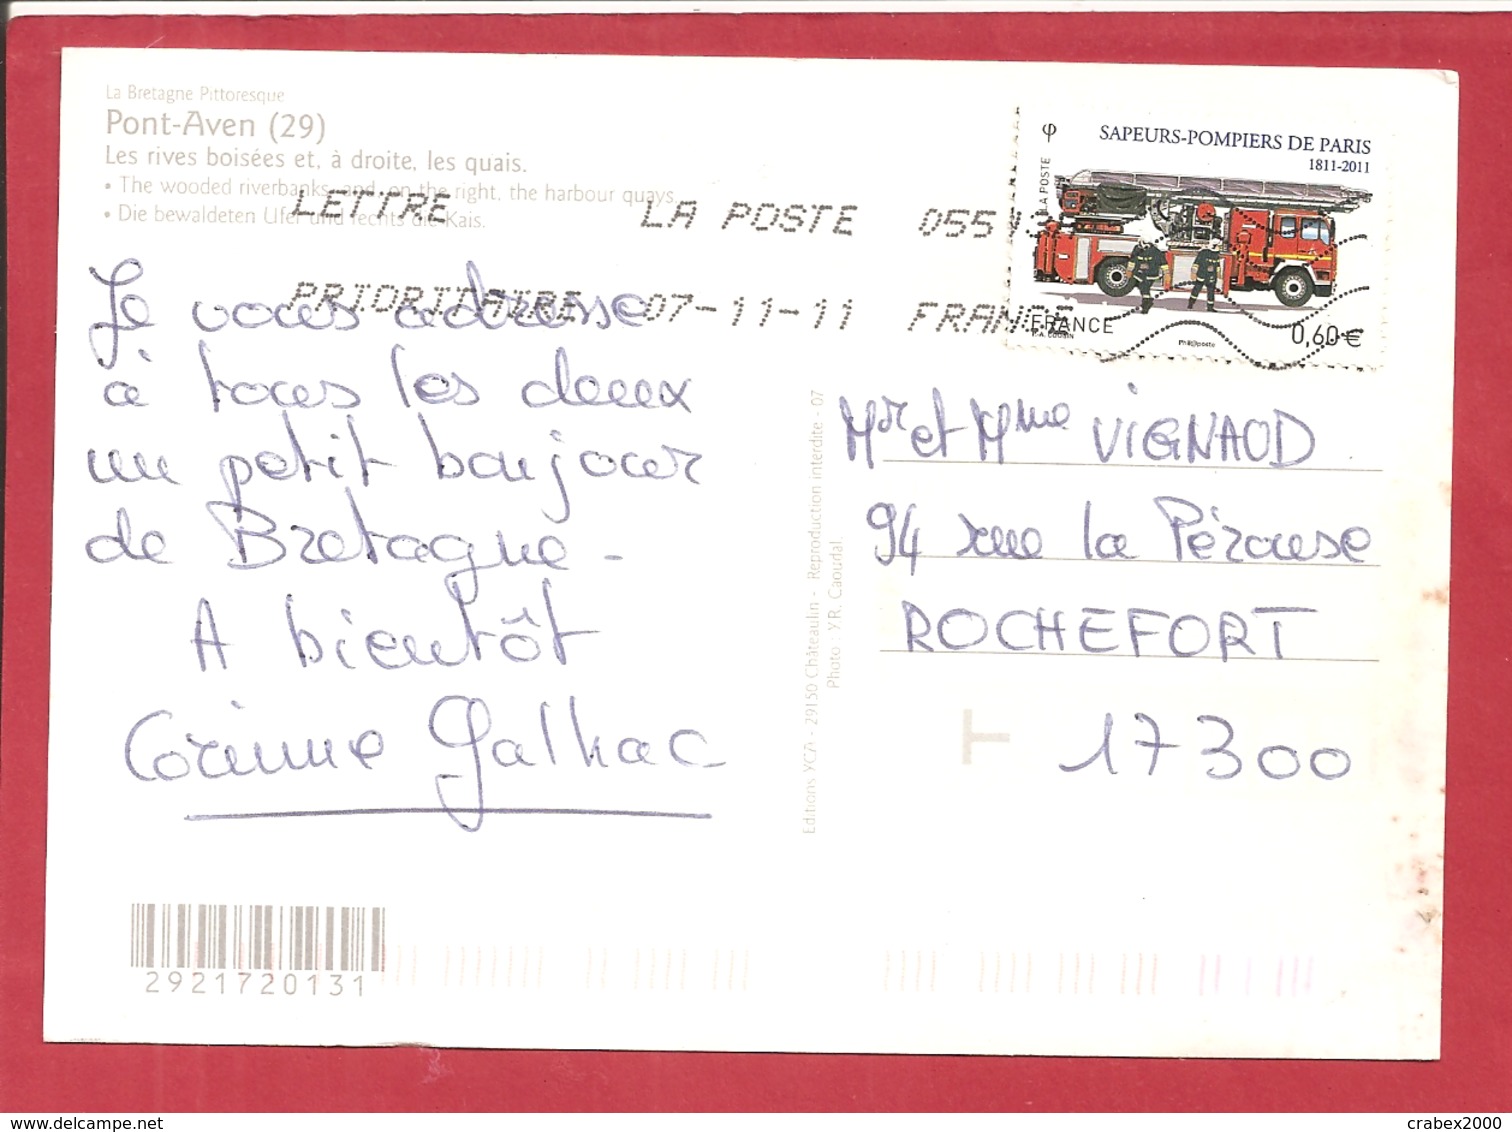 La Bretagne Pittoresque
Pont-Aven (29)
Les rives boisées et, à droite, les quais.
• The wooded riverbanks and, on the right, the harbour quays.
• Die bewaldeten Ufer und rechts die Kais.
LETTRE LA POSTE
PRIORITAIRE 07-11-11 FRANCE
φ SAPEURS-POMPIERS DE PARIS
1811-2011
LA POSTE
FRANCE 0,60 €
P.A. COUSIN Phil@poste
Je vous adresse
à tous les deux
un petit bonjour
de Bretagne -
A bientôt
Corinne Galhac
Mr et Mme VIGNAUD
94 rue la Pérouse
ROCHEFORT
17300
T
Editions YCA - 29150 Châteaulin - Reproduction interdite - 07
Photo : Y.R. Caoudal.
2921720131
delcampe.net
crabex2000